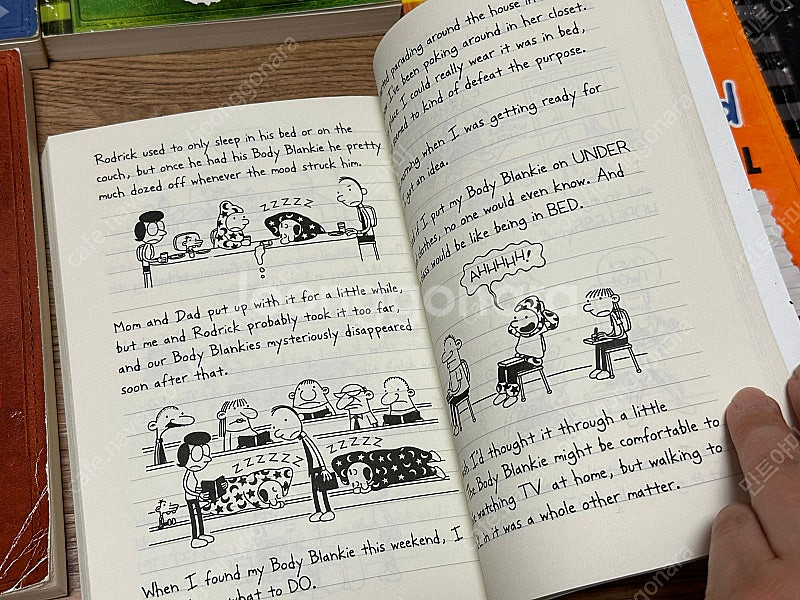 Rodrick used to only sleep in his bed or on the
couch, but once he had his Body Blankie he pretty
much dozed off whenever the mood struck him.
ZZZZZ
Mom and Dad put up with it for a little while,
but me and Rodrick probably took it too far,
and our Body Blankies mysteriously disappeared
soon after that.
ZZZZZ
ZZZZZ
When I found my Body Blankie this weekend, I
what to DO.
parading around the house in
I've been poking around in her closet.
I could really wear it was in bed,
kind of defeat the purpose.
when I was getting ready for
got an idea.
if I put my Body Blankie on UNDER
clothes, no one would even know. And
would be like being in BED.
AHHHHH!
I'd thought it through a little
The Body Blankie might be comfortable to
watching TV at home, but walking to
in it was a whole other matter.
L
joonggonara